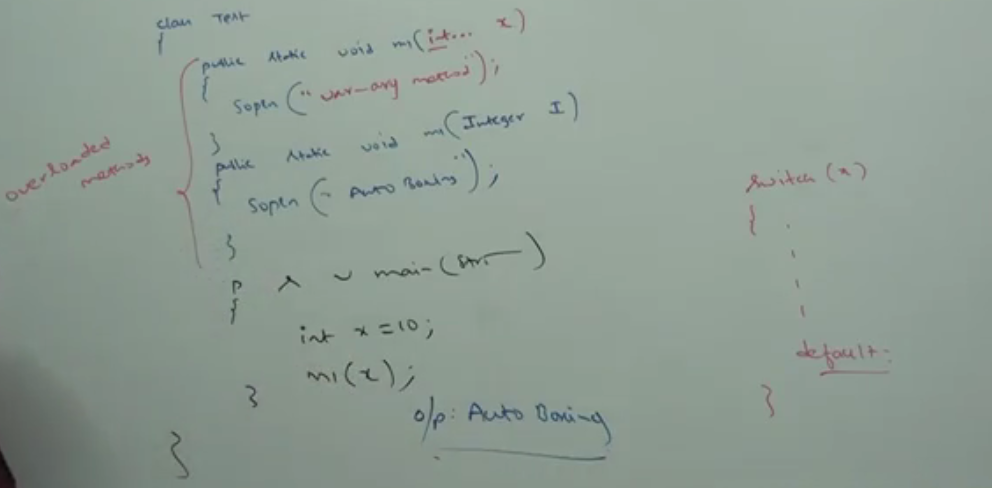 class Test
{
public static void m1(int... x)
{
Sopln("var-arg method");
}
public static void m1(Integer I)
{
Sopln("Auto Boxing");
}
p s v main(Str—)
{
int x = 10;
m1(x);
}
}
o/p: Auto Boxing
overloaded
methods
switch(x)
{
default:
}